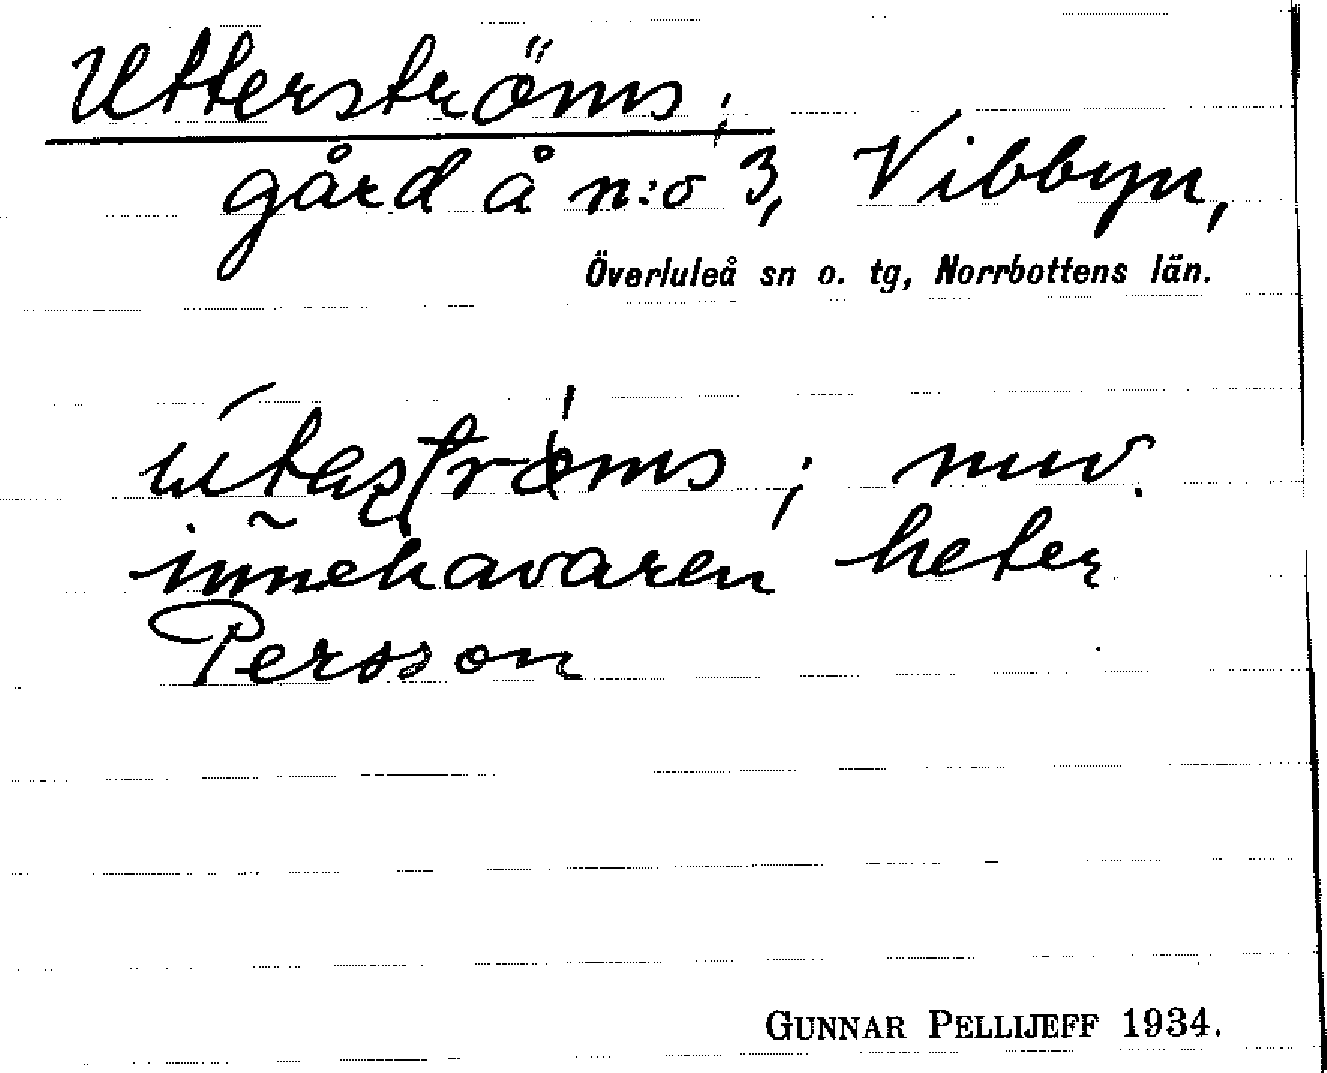 Utterströms;
gård å n:o 3, Vibbyn,
Överluleå sn o. tg, Norrbottens län.
nuv.
innehavaren heter
Persson
GUNNAR PELLIJEFF 1934.